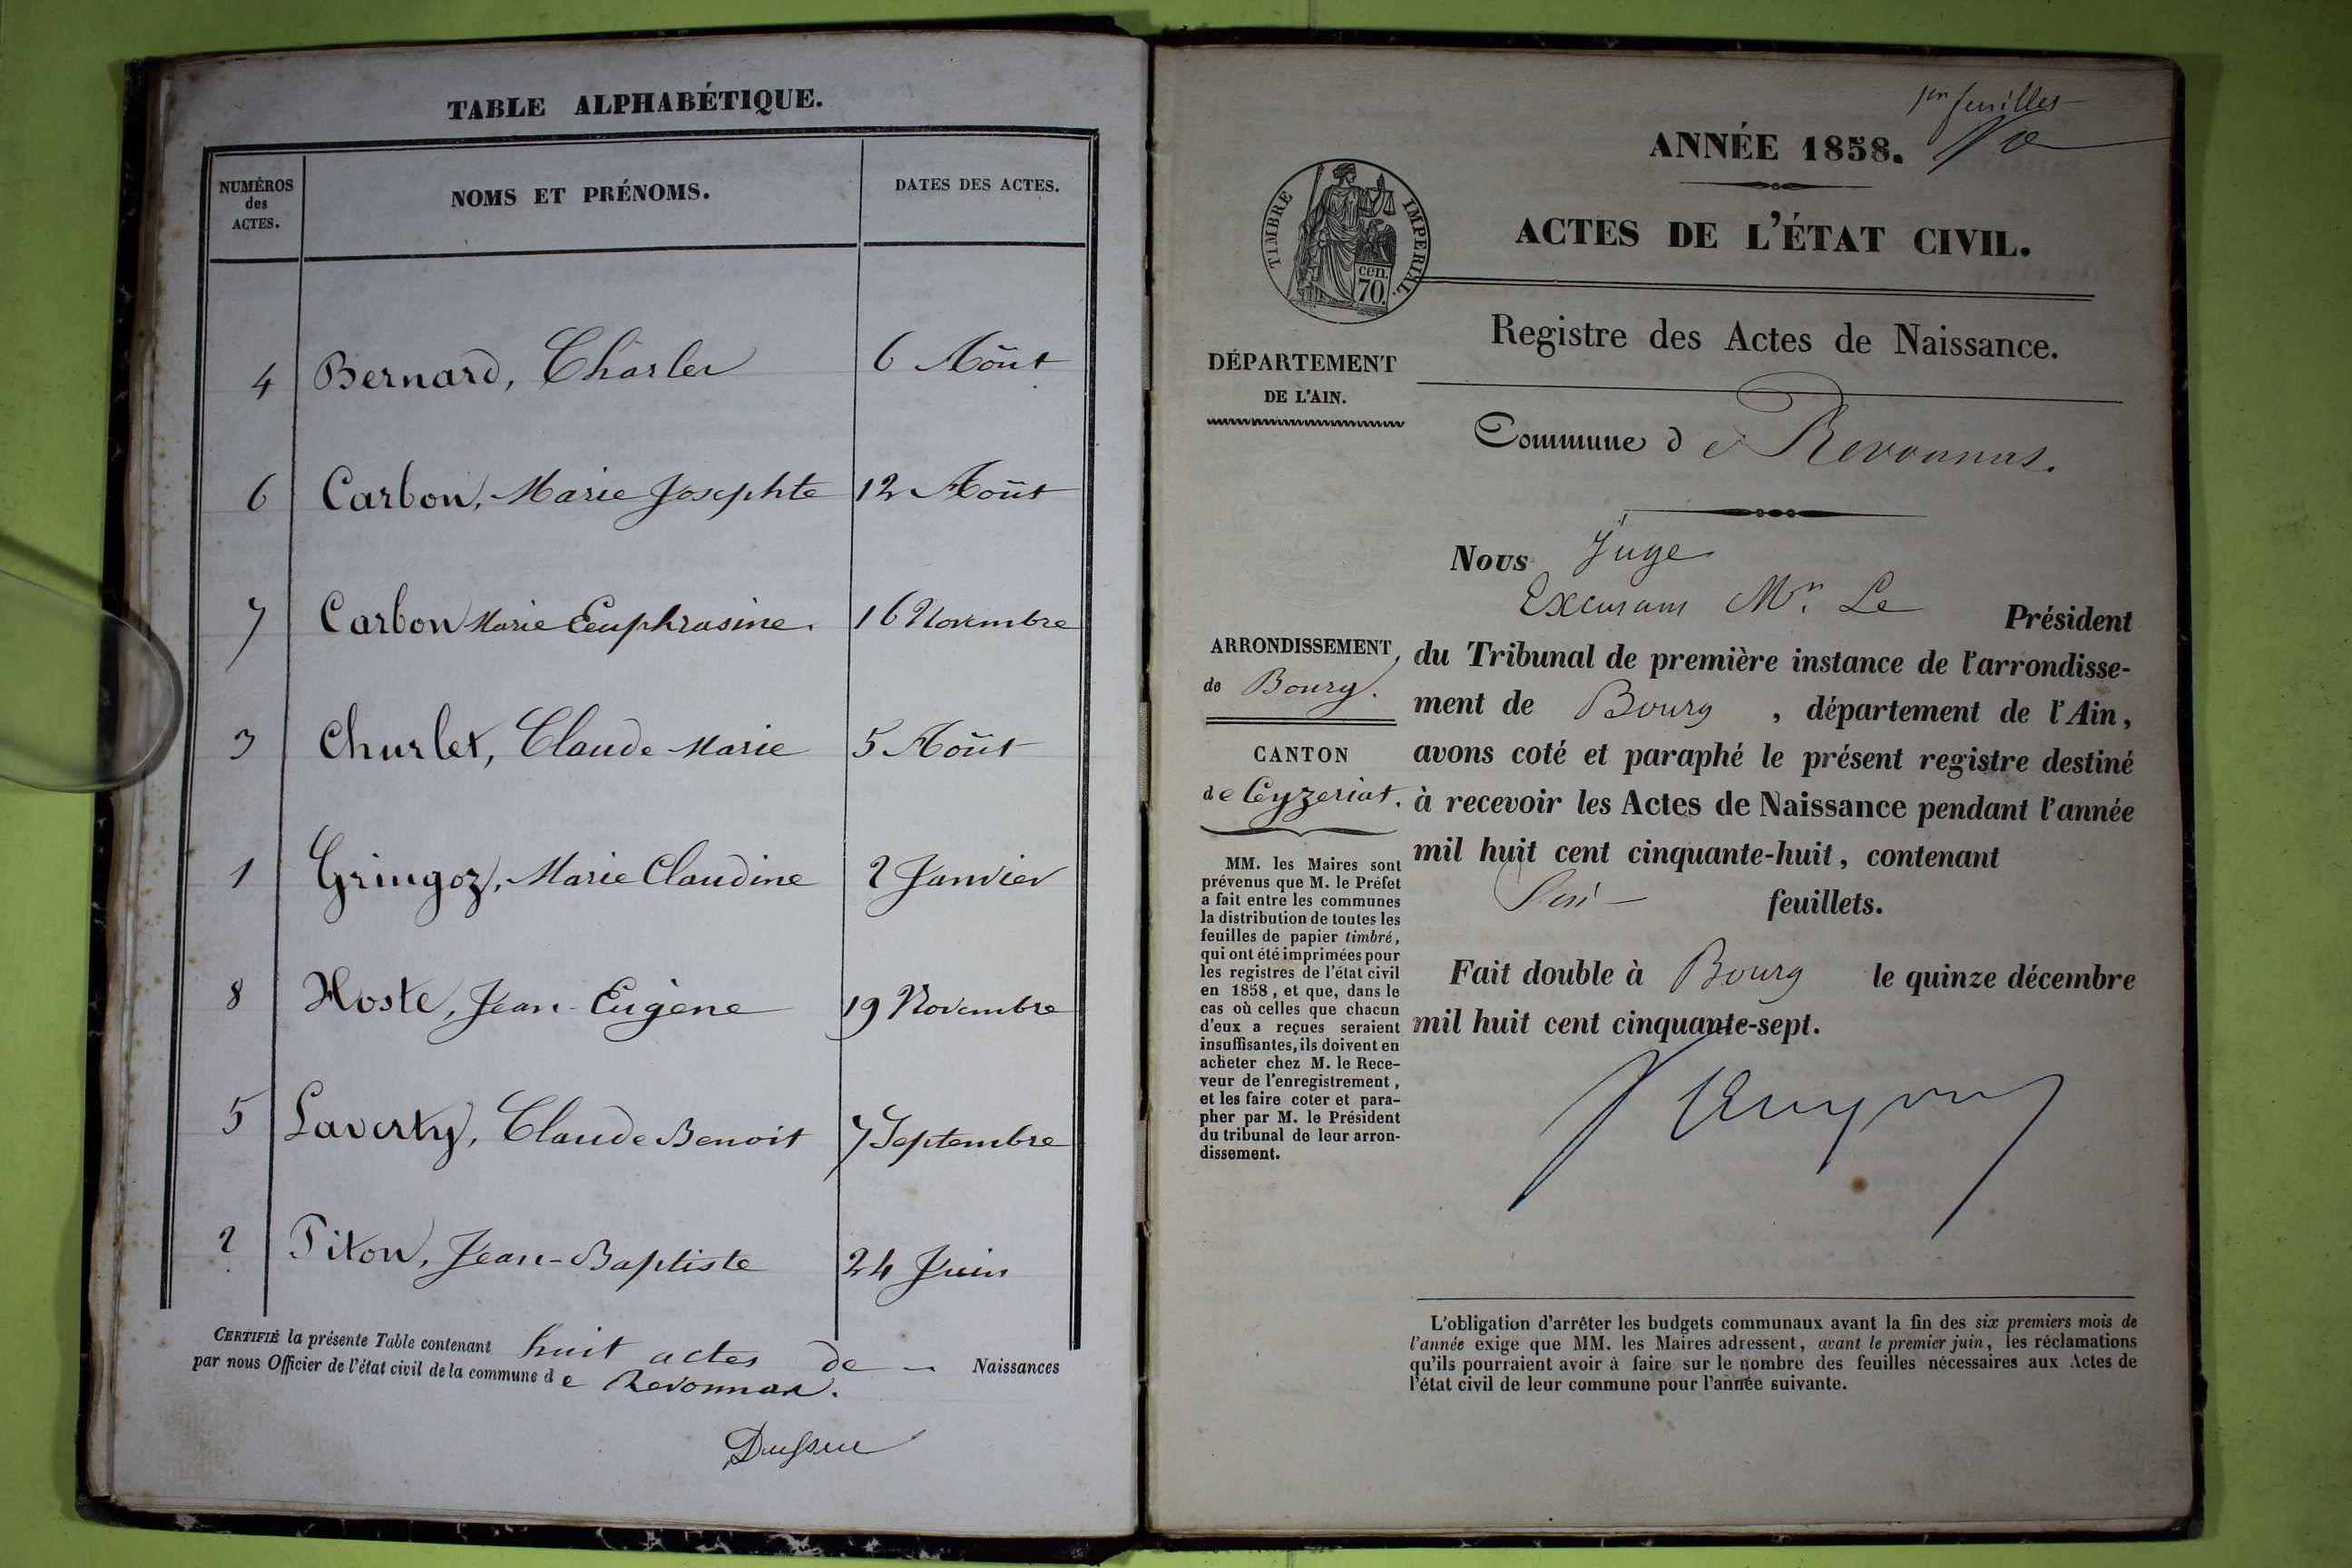 TABLE ALPHABÉTIQUE.
NUMÉROS des ACTES. NOMS ET PRÉNOMS. DATES DES ACTES.
4 Bernard, Charles 6 Août
6 Carbon, Marie Josephte 12 Août
7 Carbon Marie Eeuphrasine. 16 Novembre
3 Churlet, Claude Marie 5 Août
1 Gringoz, Marie Claudine 2 Janvier
8 Hoste, Jean-Eugène 19 Novembre
5 Laverty, Claude Benoit 7 Septembre
2 Piton, Jean-Baptiste 24 Juin
CERTIFIÉ la présente Table contenant huit actes de — Naissances
par nous Officier de l'état civil de la commune de Revonnas.
1er feuillet
ANNÉE 1858.
ACTES DE L'ÉTAT CIVIL.
TIMBRE IMPERIAL.
cen.
70.
Registre des Actes de Naissance.
DÉPARTEMENT
DE L'AIN.
Commune de Revonnas.
Nous Juge
Excusant Mr. Le Président
ARRONDISSEMENT
de Bourg.
CANTON
de Ceyzeriat.
du Tribunal de première instance de l'arrondisse-
ment de Bourg, département de l'Ain,
avons coté et paraphé le présent registre destiné
à recevoir les Actes de Naissance pendant l'année
mil huit cent cinquante-huit, contenant
feuillets.
Fait double à Bourg le quinze décembre
mil huit cent cinquante-sept.
MM. les Maires sont
prévenus que M. le Préfet
a fait entre les communes
la distribution de toutes les
feuilles de papier timbré,
qui ont été imprimées pour
les registres de l'état civil
en 1858, et que, dans le
cas où celles que chacun
d'eux a reçues seraient
insuffisantes, ils doivent en
acheter chez M. le Rece-
veur de l'enregistrement,
et les faire coter et para-
pher par M. le Président
du tribunal de leur arron-
dissement.
L'obligation d'arrêter les budgets communaux avant la fin des six premiers mois de
l'année exige que MM. les Maires adressent, avant le premier juin, les réclamations
qu'ils pourraient avoir à faire sur le nombre des feuilles nécessaires aux Actes de
l'état civil de leur commune pour l'année suivante.